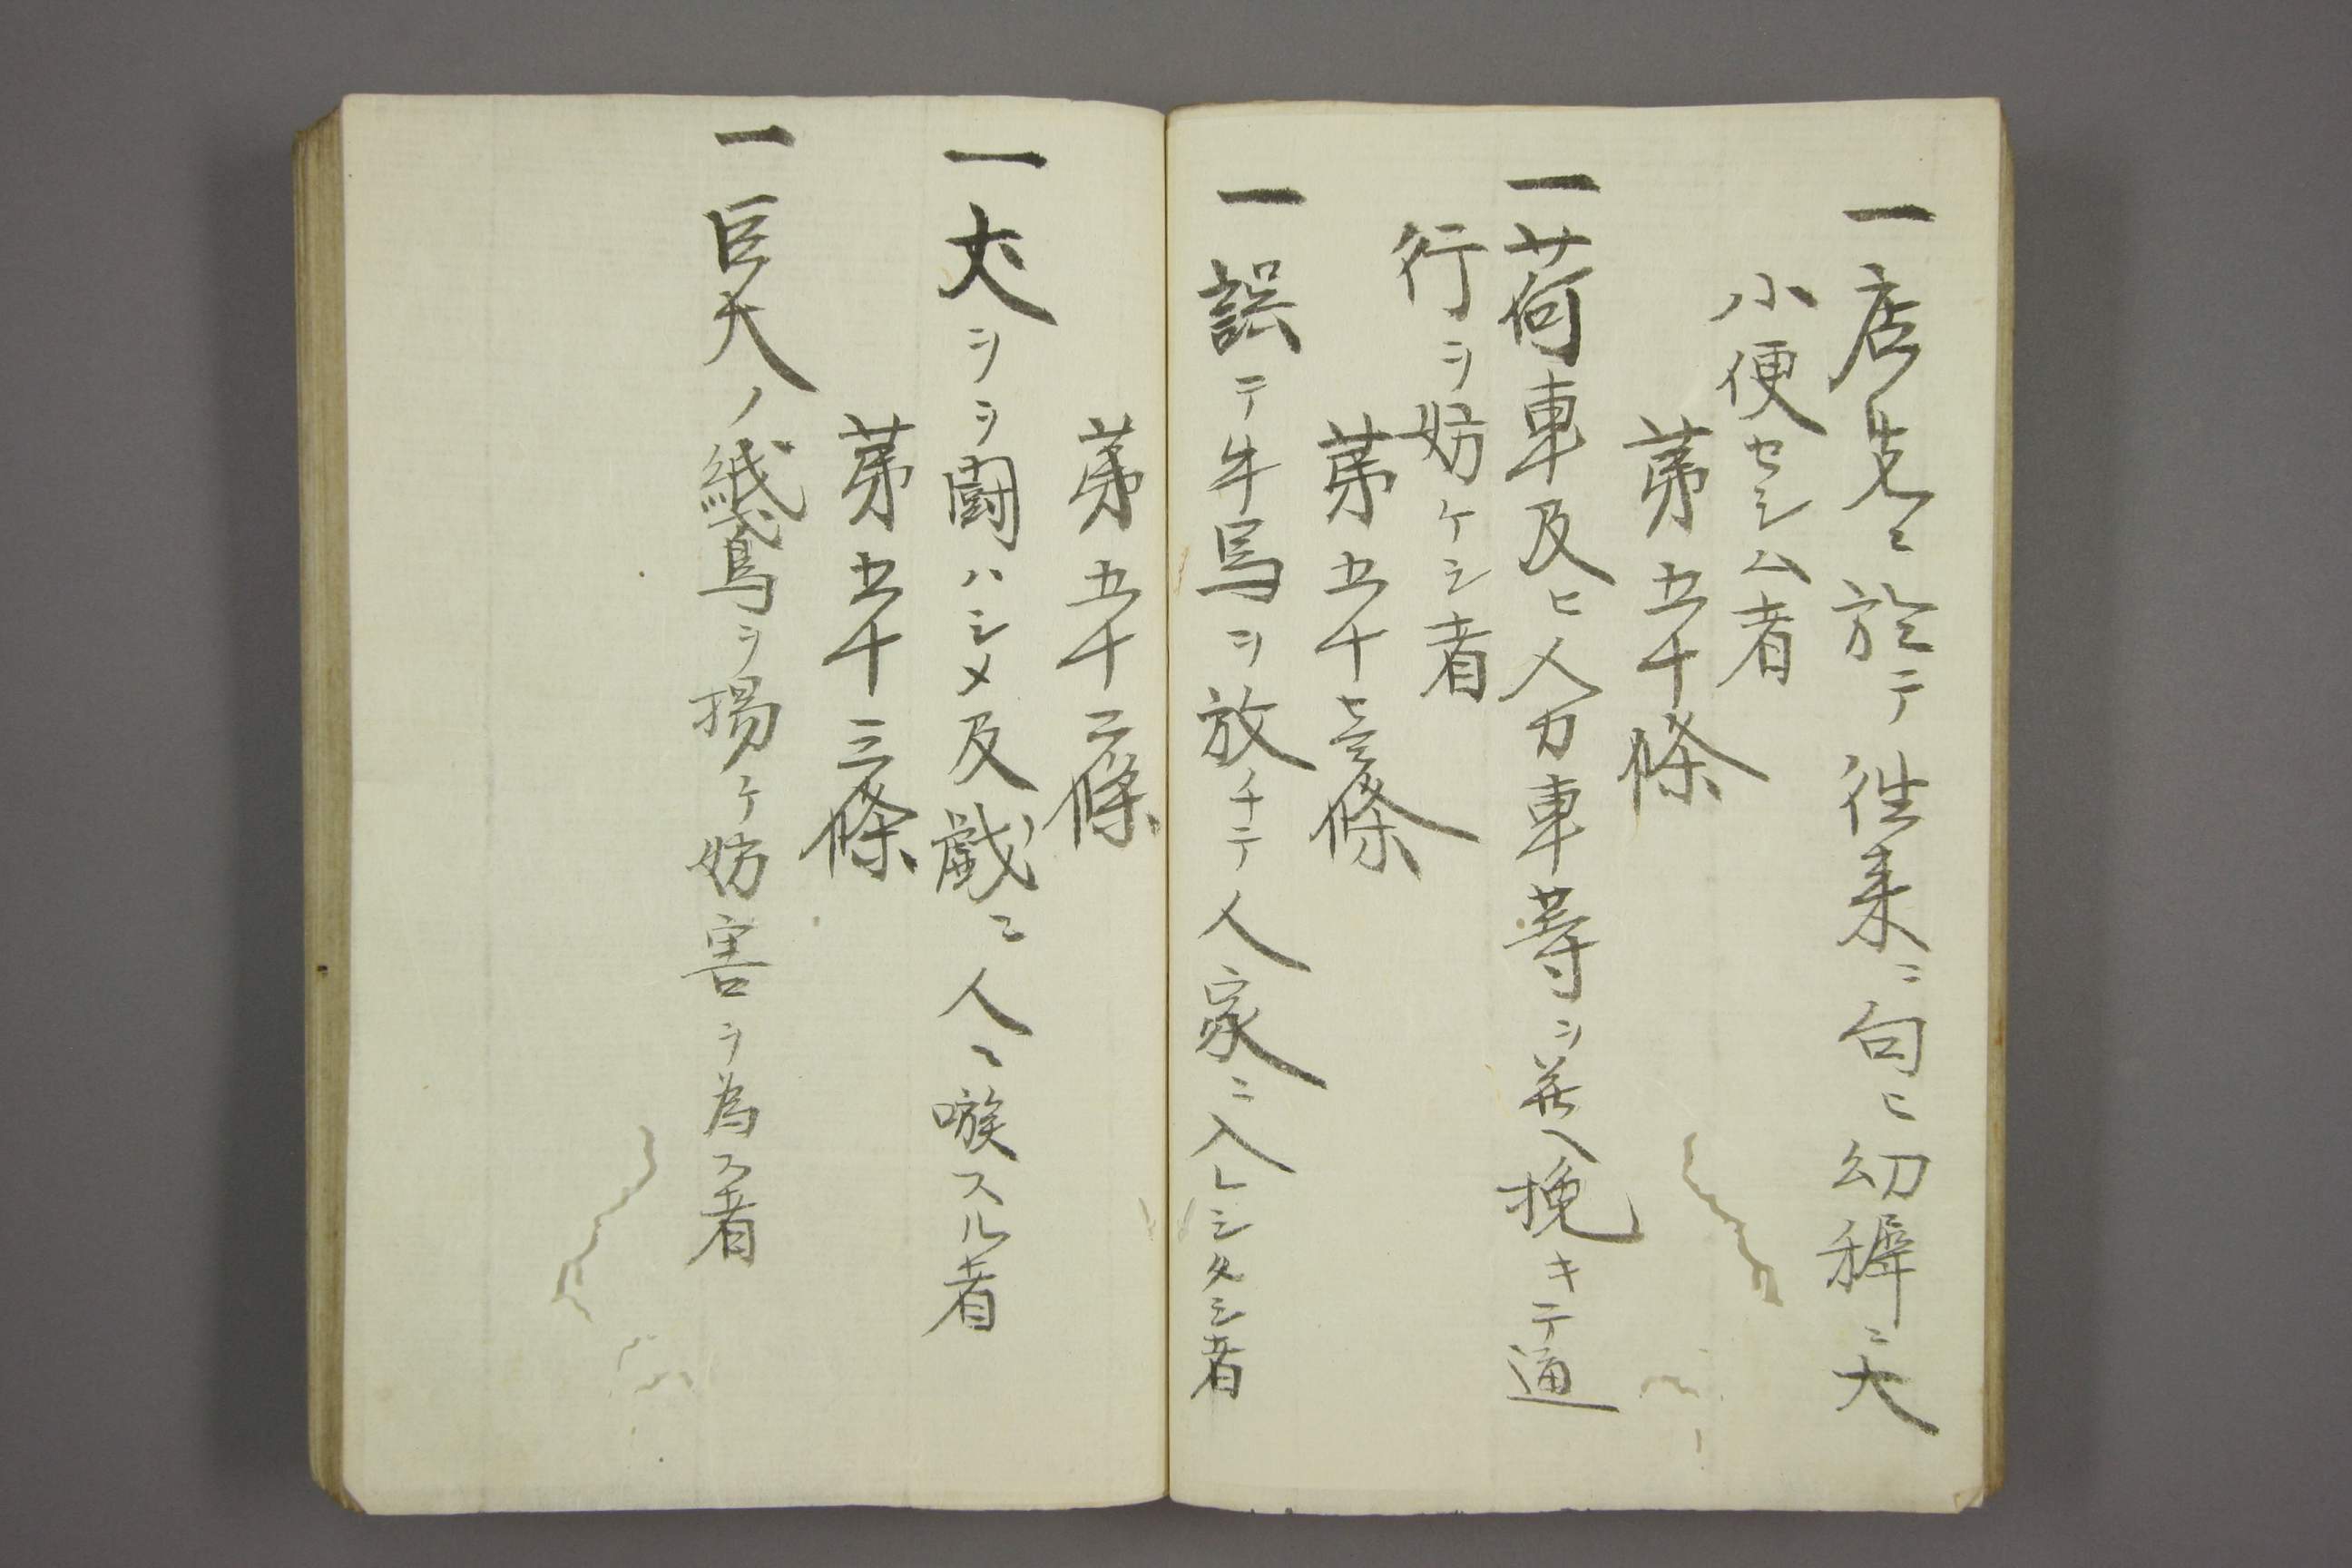 一店先ニ於テ徃来ニ向ヒ幼稺ニ大
小便セシム者
苐五十條
一荷車及ヒ人力車等ヲ並ヘ挽キテ通
行ヲ妨ケシ者
苐五十壱條
一誤テ牛馬ヲ放チテ人家ニ入レシタシ者
苐五十二條
一犬ヲヲ闘ハシメ及戯ニ人ヲ嗾スル者
苐五十三條
一巨大ノ紙鳶ヲ揚ケ妨害ヲ為ス者